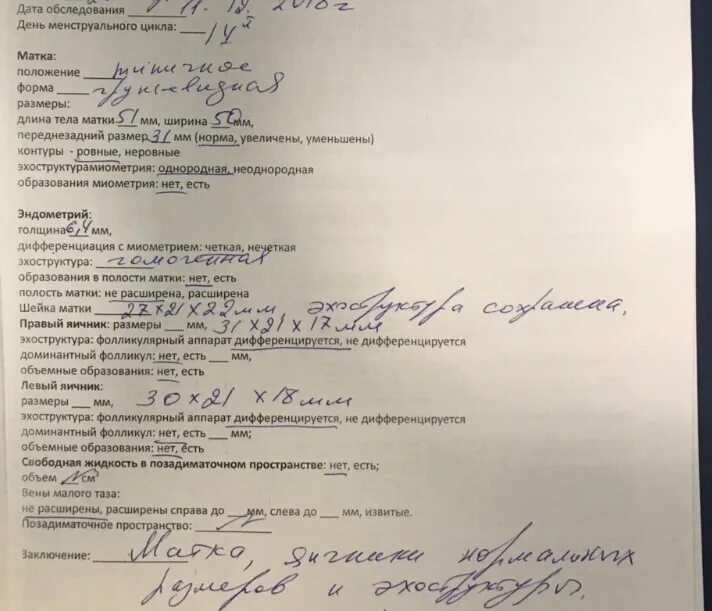 Дата обследования 11. 12. 2018 г
День менструального цикла: 14й
Матка:
положение типичное
форма грушевидная
размеры:
длина тела матки 51 мм, ширина 50 мм,
переднезадний размер 31 мм (норма, увеличены, уменьшены)
контуры - ровные, неровные
эхоструктурамиометрия: однородная, неоднородная
образования миометрия: нет, есть
Эндометрий:
толщина 6,4 мм,
дифференциация с миометрием: четкая, нечеткая
эхоструктура: гомогенная
образования в полости матки: нет, есть
полость матки: не расширена, расширена
Шейка матки 27 х 21 х 22 мм, эхоструктура сохранена,
Правый яичник: размеры ___ мм, 31 х 21 х 17 мм
эхоструктура: фолликулярный аппарат дифференцируется, не дифференцируется
доминантный фолликул: нет, есть ___ мм,
объемные образования: нет, есть
Левый яичник:
размеры ___ мм, 30 х 21 х 18 мм
эхоструктура: фолликулярный аппарат дифференцируется, не дифференцируется
доминантный фолликул: нет, есть ___ мм;
объемные образования: нет, есть
Свободная жидкость в позадиматочном пространстве: нет, есть;
объем N см³
Вены малого таза:
не расширены, расширены справа до ___ мм, слева до ___ мм, извитые.
Позадиматочное пространство: N
Заключение: Матка, яичники нормальных
размеров и эхоструктуры.